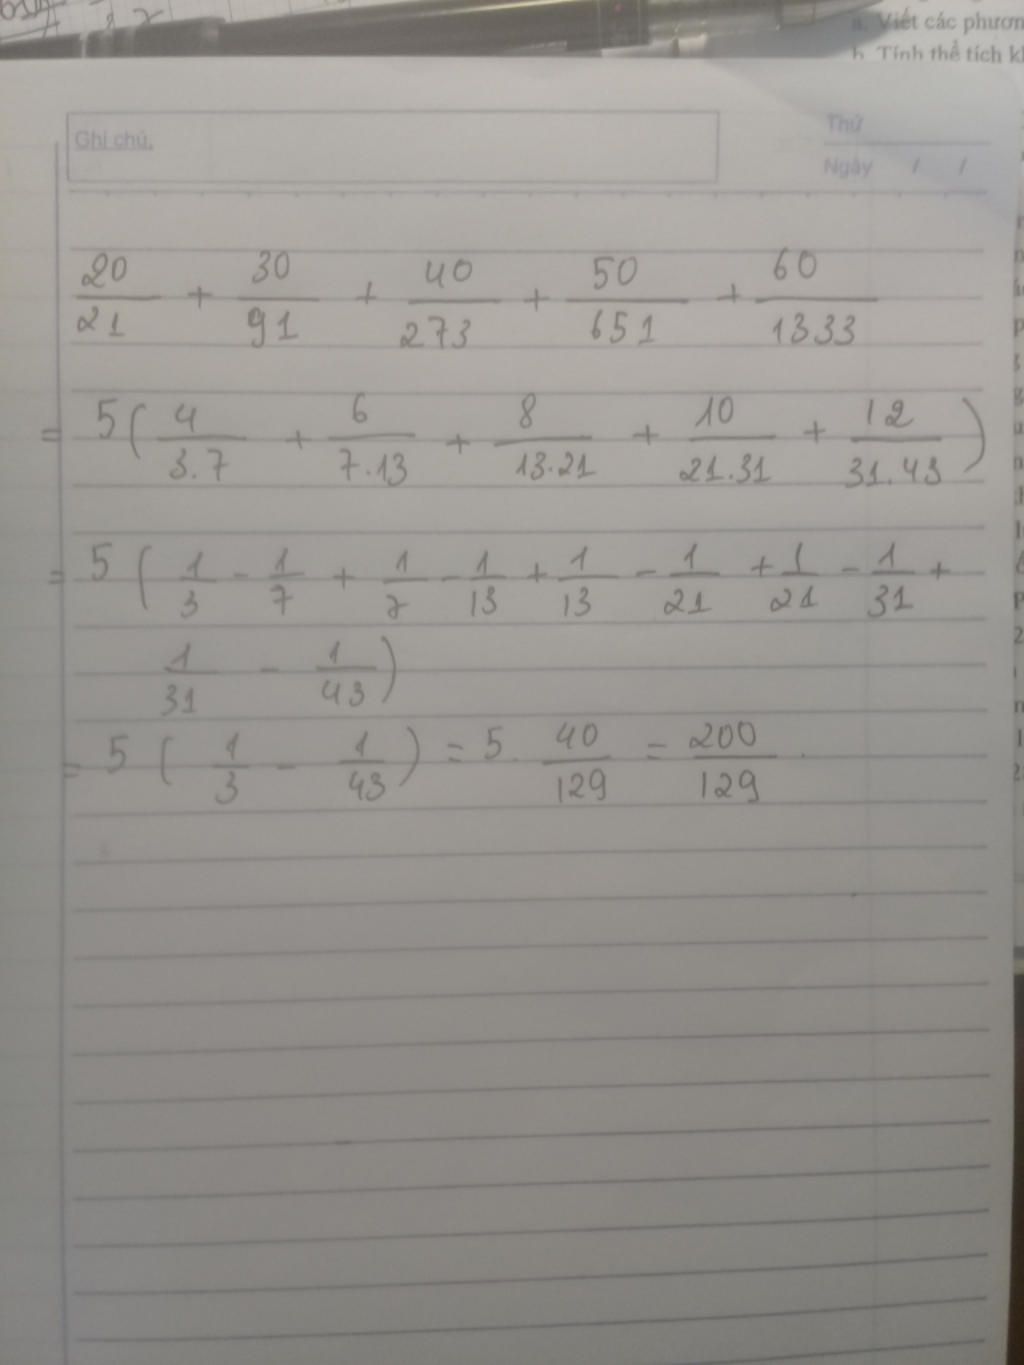 a. Viết các phươn
b. Tính thể tích kl
Ghi chú.
Thứ
Ngày / /
20/21 + 30/91 + 40/273 + 50/651 + 60/1333
= 5( 4/3.7 + 6/7.13 + 8/13.21 + 10/21.31 + 12/31.43 )
= 5 ( 1/3 - 1/7 + 1/7 - 1/13 + 1/13 - 1/21 + 1/21 - 1/31 +
1/31 - 1/43 )
= 5 ( 1/3 - 1/43 ) = 5. 40/129 = 200/129 .